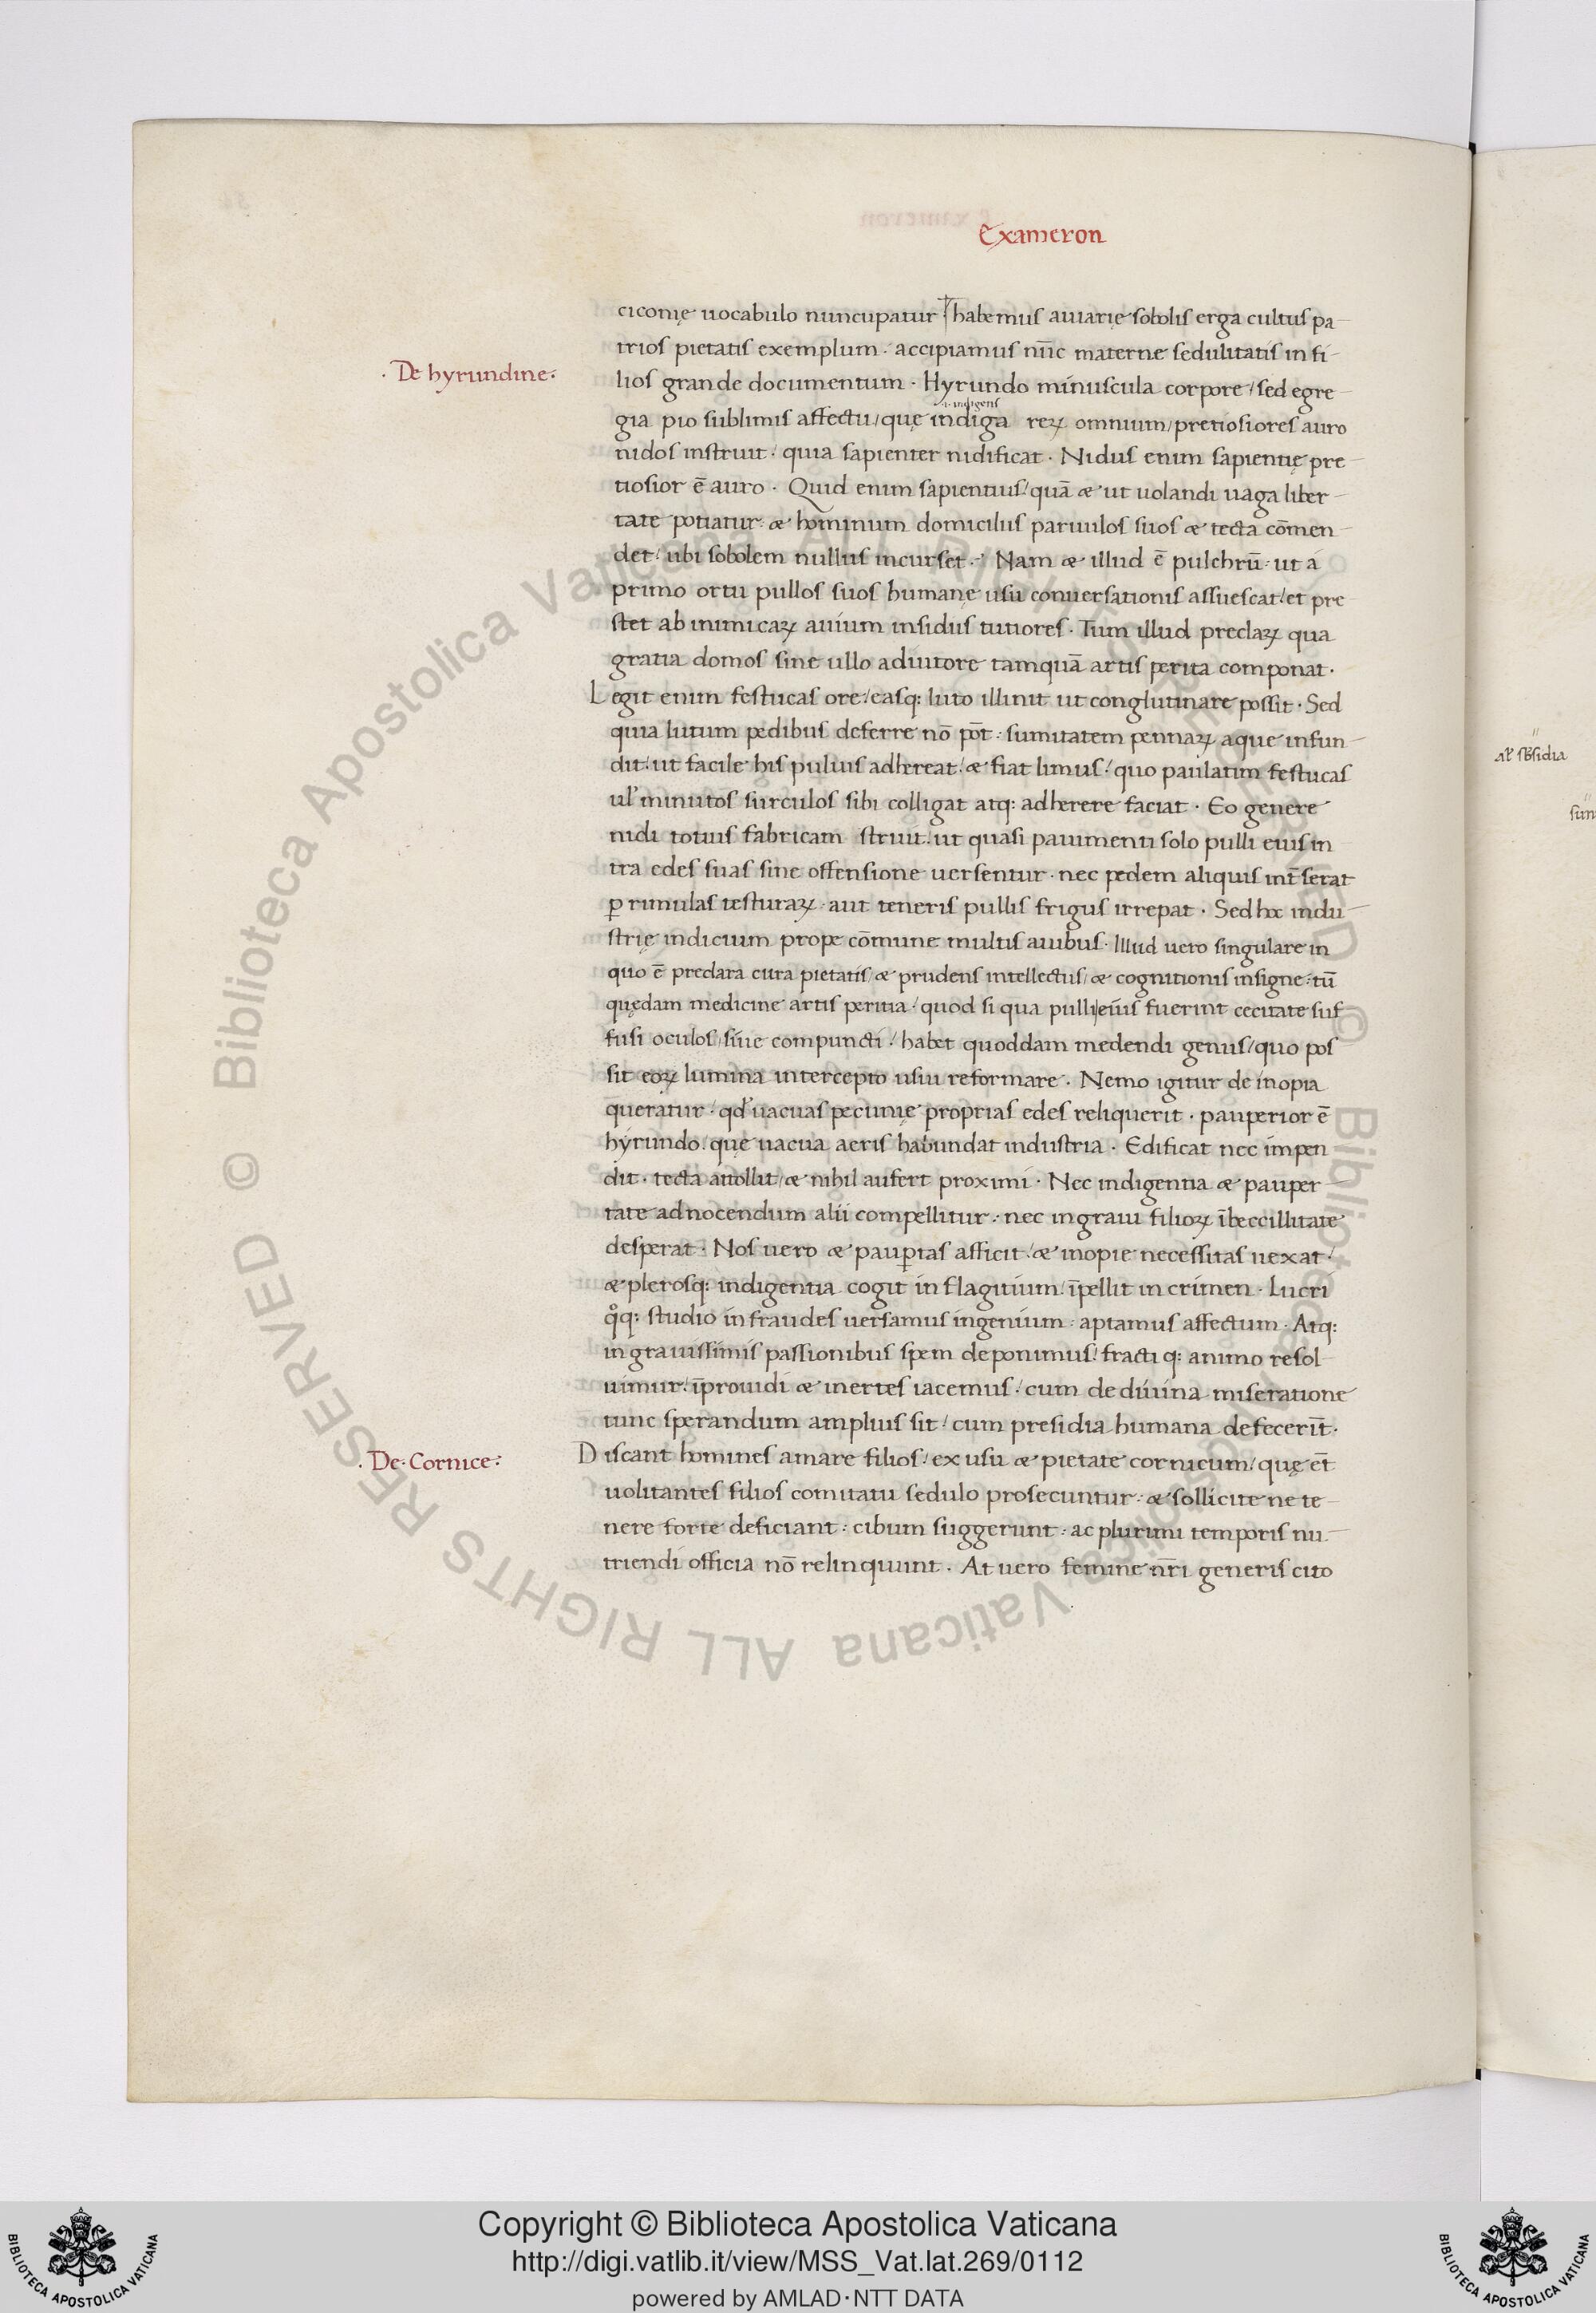 Exameron
ciconię uocabulo nuncupatur · habemus auiarię sobolis erga cultus pa-
trios pietatis exemplum · accipiamus nu̅c materne sedulitatis in fi-
· De hyrundine :
lios grande documentum · Hyrundo minuscula corpore / sed egre-
·i· indigens
gia pio sublimis affectu / quę indiga reꝝ omnium / pretiosiores auro
nidos instruit · quia sapienter nidificat · Nidus enim sapientię pre-
tiosior e̅ auro · Quid enim sapientius / qua̅ & ut uolandi uaga liber-
tate potiatur : & hominum domiciliis paruulos suos & tecta co̅men-
det / ubi sobolem nullus incurset · Nam & illud e̅ pulchru̅ · ut a
primo ortu pullos suos humanę usu conuersationis assuescat / et pre
stet ab inimicaꝝ auium insidiis tutiores · Tum illud preclaꝝ qua
gratia domos sine ullo adiutore tamqua̅ artis perita componat ·
Legit enim festucas ore / easq: luto illinit ut conglutinare possit · Sed
quia lutum pedibus deferre no̅ po̅t : sumitatem pennaꝝ aque infun-
dit / ut facile his puluis adhereat / & fiat limus / quo paulatim festucas
ul' minutos surculos sibi colligat atq: adherere faciat · Eo genere
nidi totius fabricam struit / ut quasi pauimenti solo pulli eius in
tra edes suas sine offensione uersentur · nec pedem aliquis int̅serat
ꝑ rimulas testuraꝝ · aut teneris pullis frigus irrepat · Sed hoc indu-
strię indicium prope co̅mune multis auibus · Illud uero singulare in
quo e̅ preclara cura pietatis / & prudens intellectus / & cognitionis insigne : tu̅
quędam medicine artis peritia / quod si qua pulli eius fuerint cecitate suf
fusi oculos / siue compuncti / habet quoddam medendi genus / quo pos
sit eoꝝ lumina intercepto usui reformare · Nemo igitur de inopia
queratur · qd' uacuas pecunię proprias edes reliquerit · pauperior e̅
hyrundo / quę uacua aeris habundat industria · Edificat nec impen
dit · tecta attollit / & nihil aufert proximi · Nec indigentia & pauper-
tate ad nocendum alii compellitur : nec in graui filioꝝ i̅beccillitate
desperat · Nos uero & pauꝑtas afficit / & inopie necessitas uexat /
& plerosq: indigentia cogit in flagitium / i̅pellit in crimen · Lucri
qͦq: studio in fraudes uersamus ingenium : aptamus affectum · Atq:
in grauissimis passionibus spem deponimus / fractiq: animo resol
uimur / i̅prouidi & inertes iacemus / cum de diuina miseratione
tunc sperandum amplius sit / cum presidia humana defeceri̅t ·
· De · Cornice :
Discant homines amare filios / ex usu & pietate cornicum / quę et̅
uolitantes filios comitatu sedulo prosecuntur : & sollicite ne te-
nere forte deficiant : cibum suggerunt : ac plurimi temporis nu-
triendi officia no̅ relinquunt · At uero femine nr̅i generis cito
al' sb̅sidia
© Biblioteca Apostolica Vaticana ALL RIGHTS RESERVED © Biblioteca Apostolica Vaticana ALL RIGHTS RESERVED
Copyright © Biblioteca Apostolica Vaticana
http://digi.vatlib.it/view/MSS_Vat.lat.269/0112
powered by AMLAD·NTT DATA
BIBLIOTECA APOSTOLICA VATICANA
BIBLIOTECA APOSTOLICA VATICANA